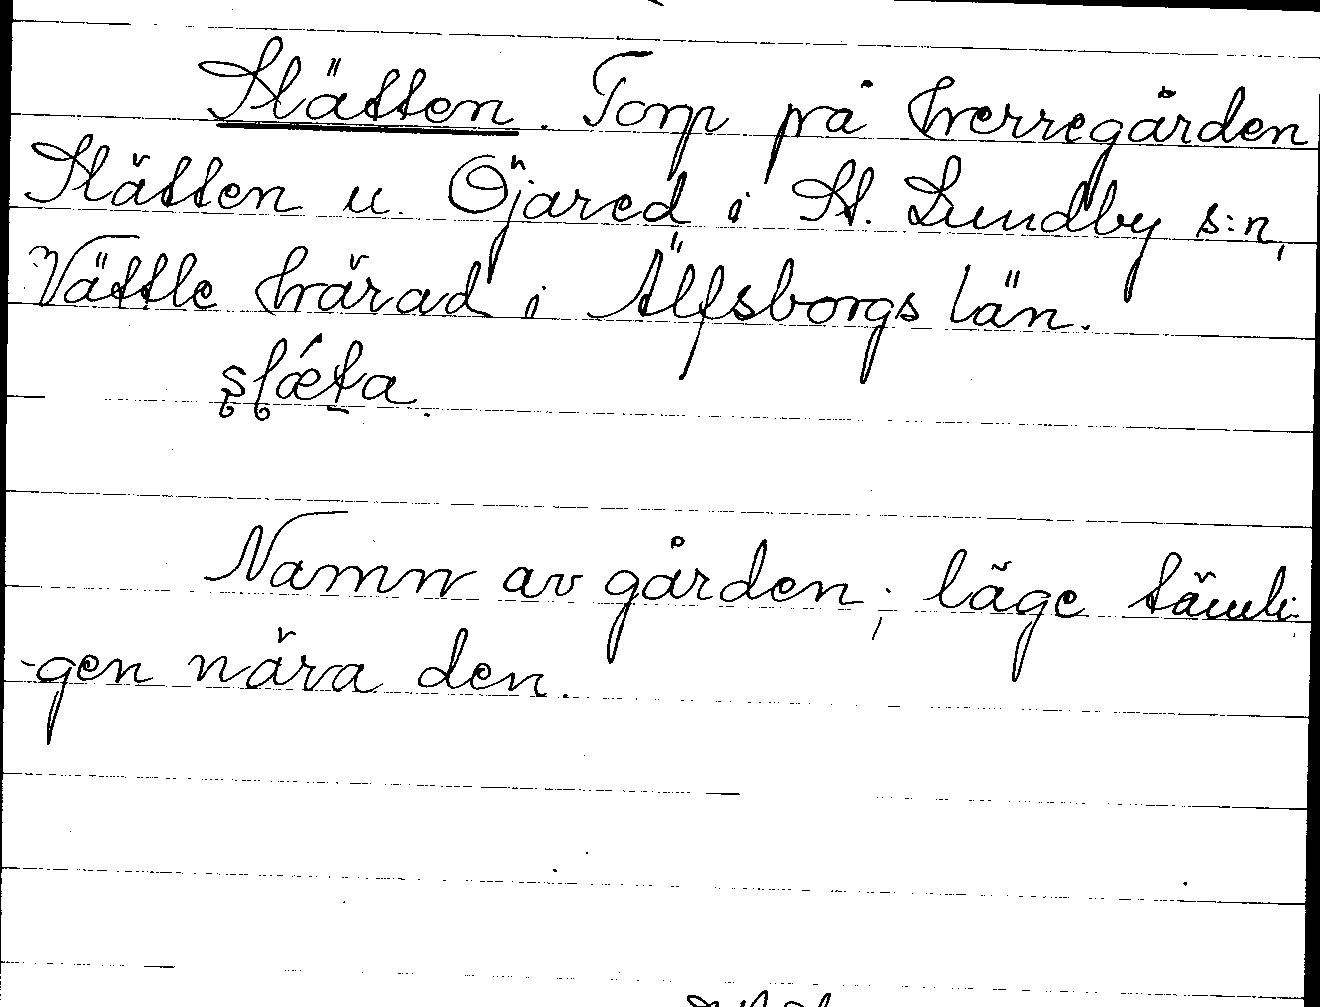 Slätten. Torp på herregården
Slätten u. Öjared i St. Lundby s:n,
Vättle härad i Älfsborgs län.
slǽta.
Namn av gården; läge tämli-
-gen nära den.